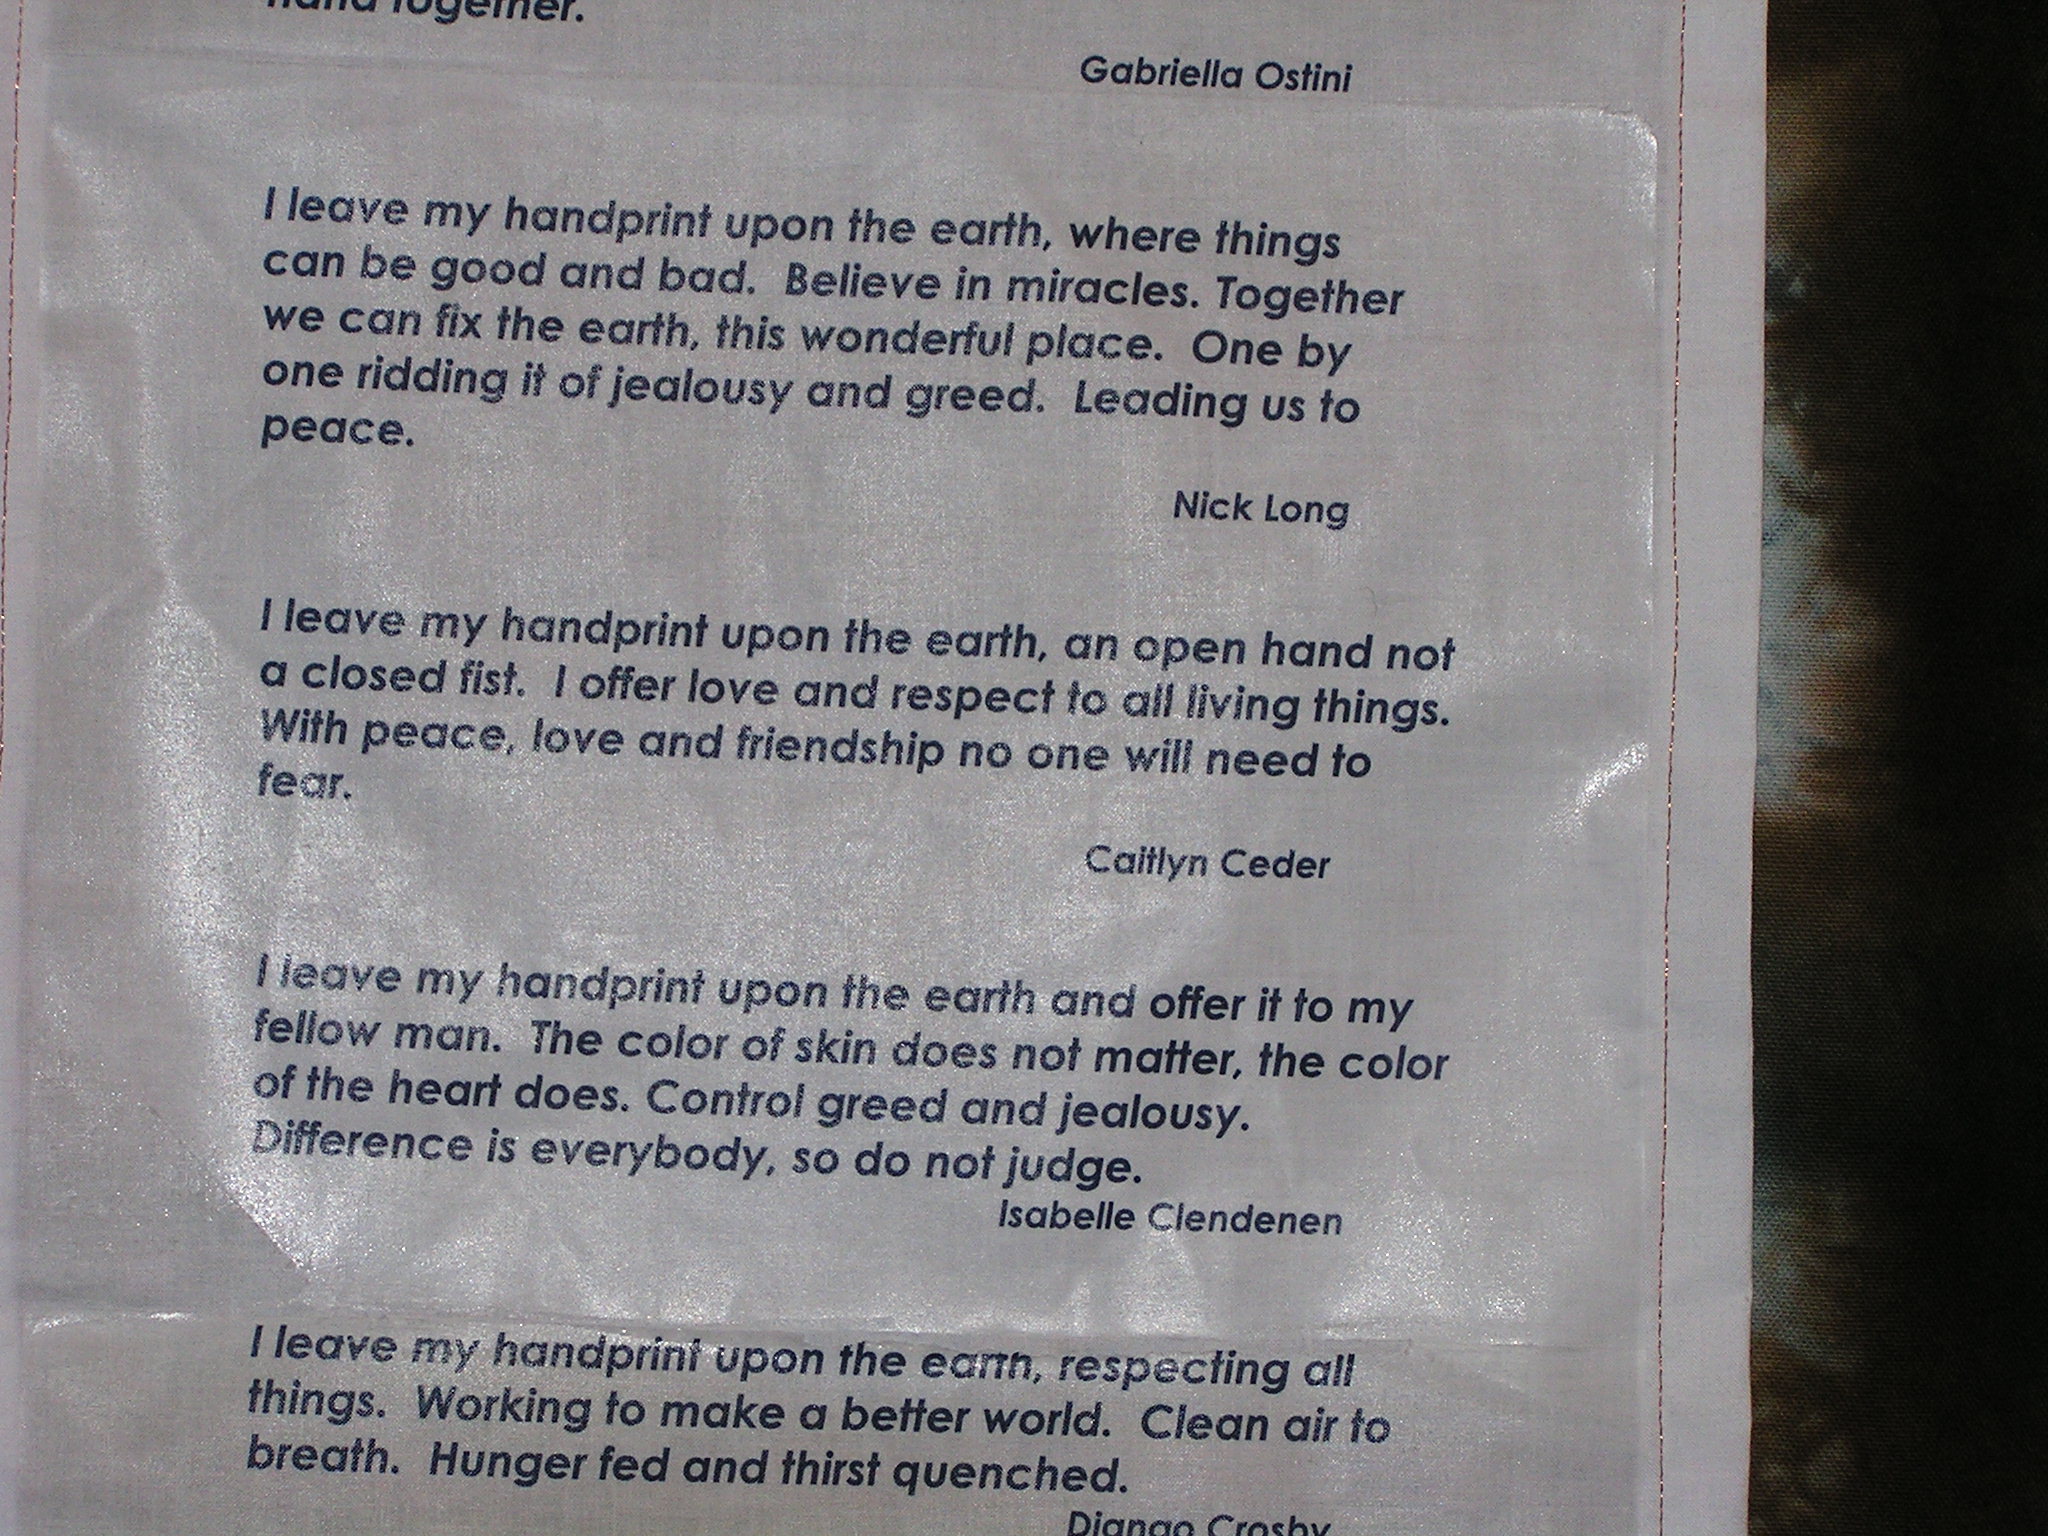 hand together.
Gabriella Ostini
I leave my handprint upon the earth, where things
can be good and bad.  Believe in miracles. Together
we can fix the earth, this wonderful place.  One by
one ridding it of jealousy and greed.  Leading us to
peace.
Nick Long
I leave my handprint upon the earth, an open hand not
a closed fist.  I offer love and respect to all living things.
With peace, love and friendship no one will need to
fear.
Caitlyn Ceder
I leave my handprint upon the earth and offer it to my
fellow man.  The color of skin does not matter, the color
of the heart does. Control greed and jealousy.
Difference is everybody, so do not judge.
Isabelle Clendenen
I leave my handprint upon the earth, respecting all
things.  Working to make a better world.  Clean air to
breath.  Hunger fed and thirst quenched.
Django Crosby